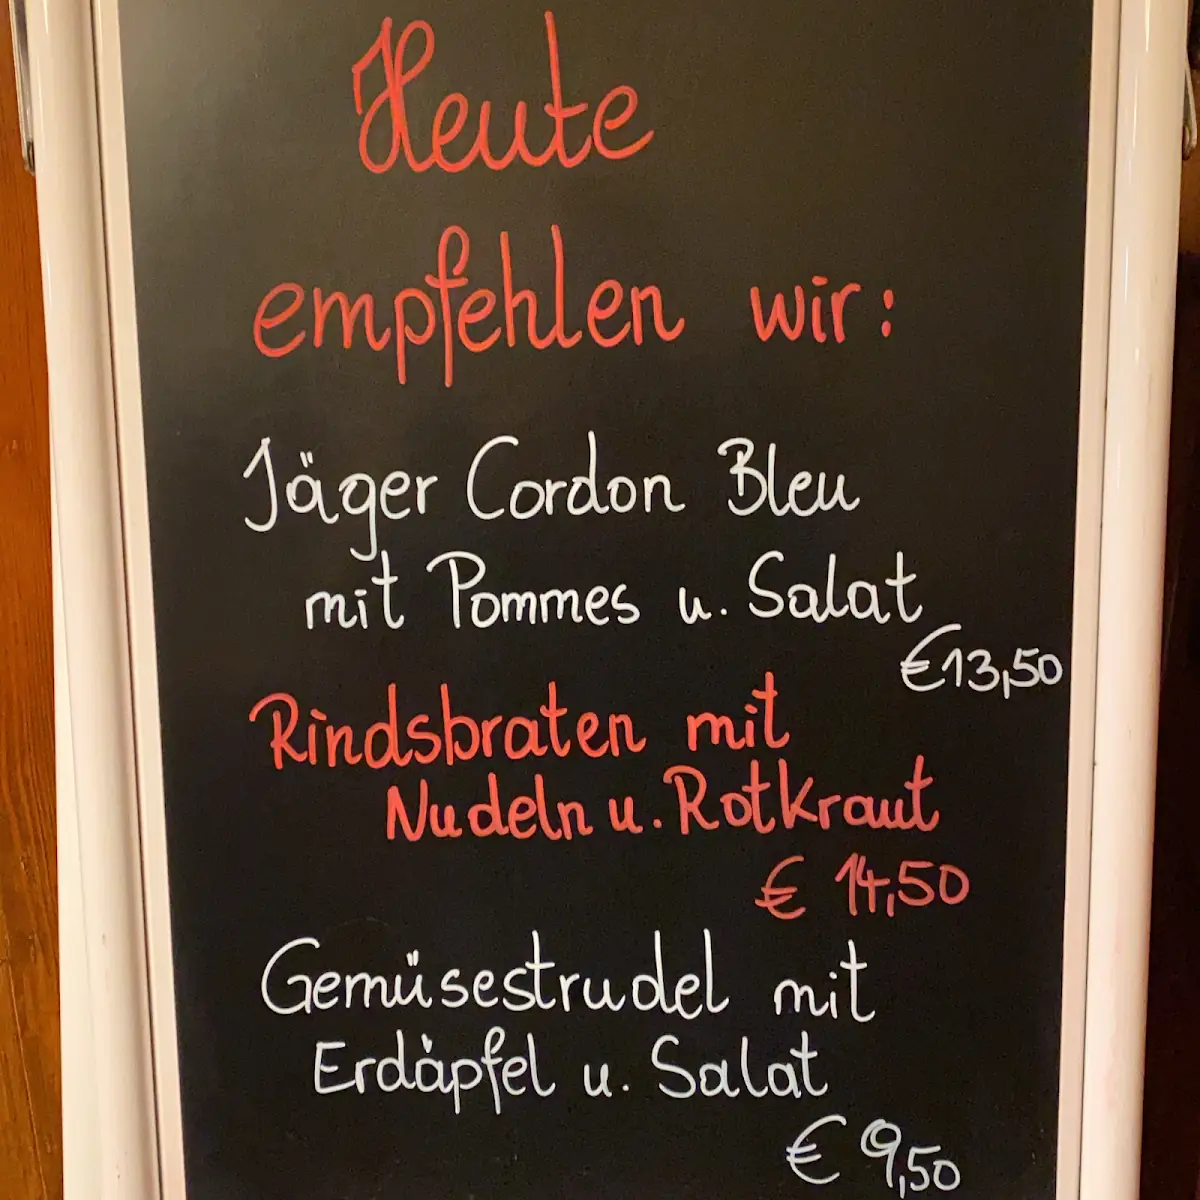 Heute
empfehlen wir:
Jäger Cordon Bleu
mit Pommes u. Salat
€13,50
Rindsbraten mit
Nudeln u. Rotkraut
€ 14,50
Gemüsestrudel mit
Erdäpfel u. Salat
€ 9,50